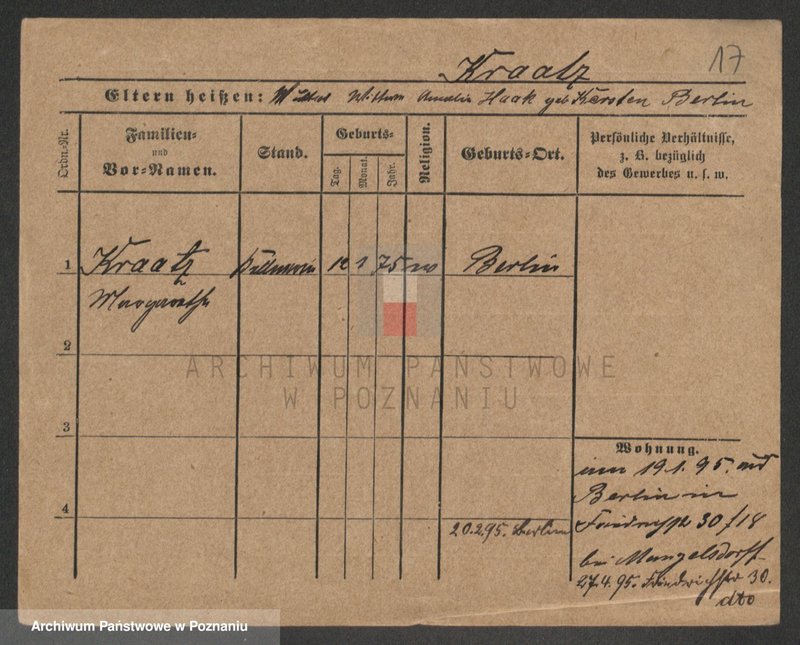 17
Kraatz
Eltern heißen: Wilhelm Amalie Haak geb Kersten Berlin
Ordn.-Nr.
Familien-
und
Vor-Namen.
Stand.
Geburts-
Tag.
Monat.
Jahr.
Religion.
Geburts-Ort.
Persönliche Verhältnisse,
z. B. bezüglich
des Gewerbes u. s. w.
1 Kraatz 12 1 75 Berlin
Margarethe
2
ARCHIWUM PAŃSTWOWE
W POZNANIU
3
Wohnung.
19.1.95.
Berlin
4
20.2.95. Berlin
30/18
bei Mangelsdorff
27.4.95. Friedrichstr 30.
dto
Archiwum Państwowe w Poznaniu